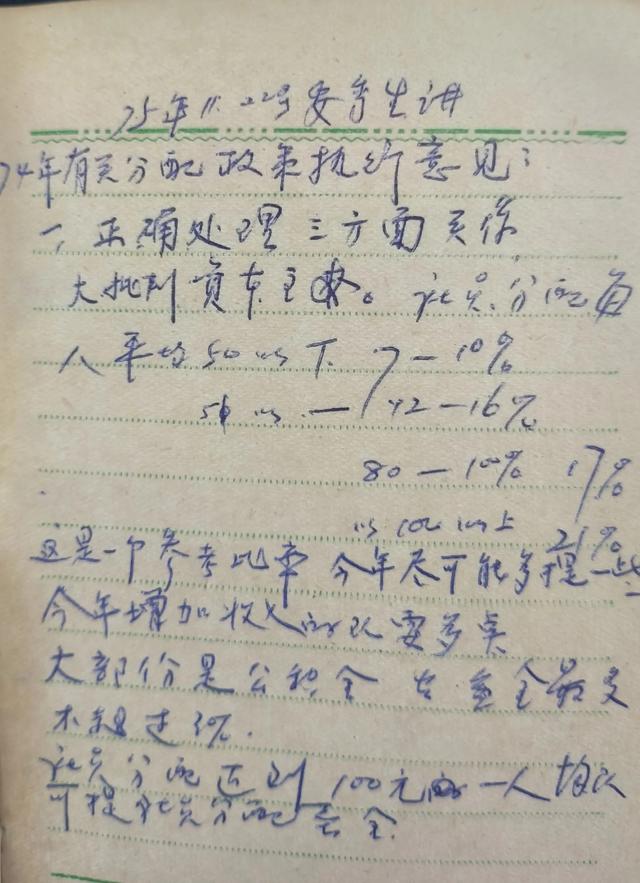 75年11.22号委考生讲
74年有关分配政策执行意见：
一，正确处理三方面关係
大批判资本主义。社员分配每
人平均50以下 7—10%
50以 — 12—16%
80—100% 17%
以100以上 21%
这是一个参考比率 今年尽可能多提一些
今年增加收入的队要多卖
大部份是公积金 公益金最多
不超过3%.
社员分配达到100元的一人均以
可提社员分配基金.